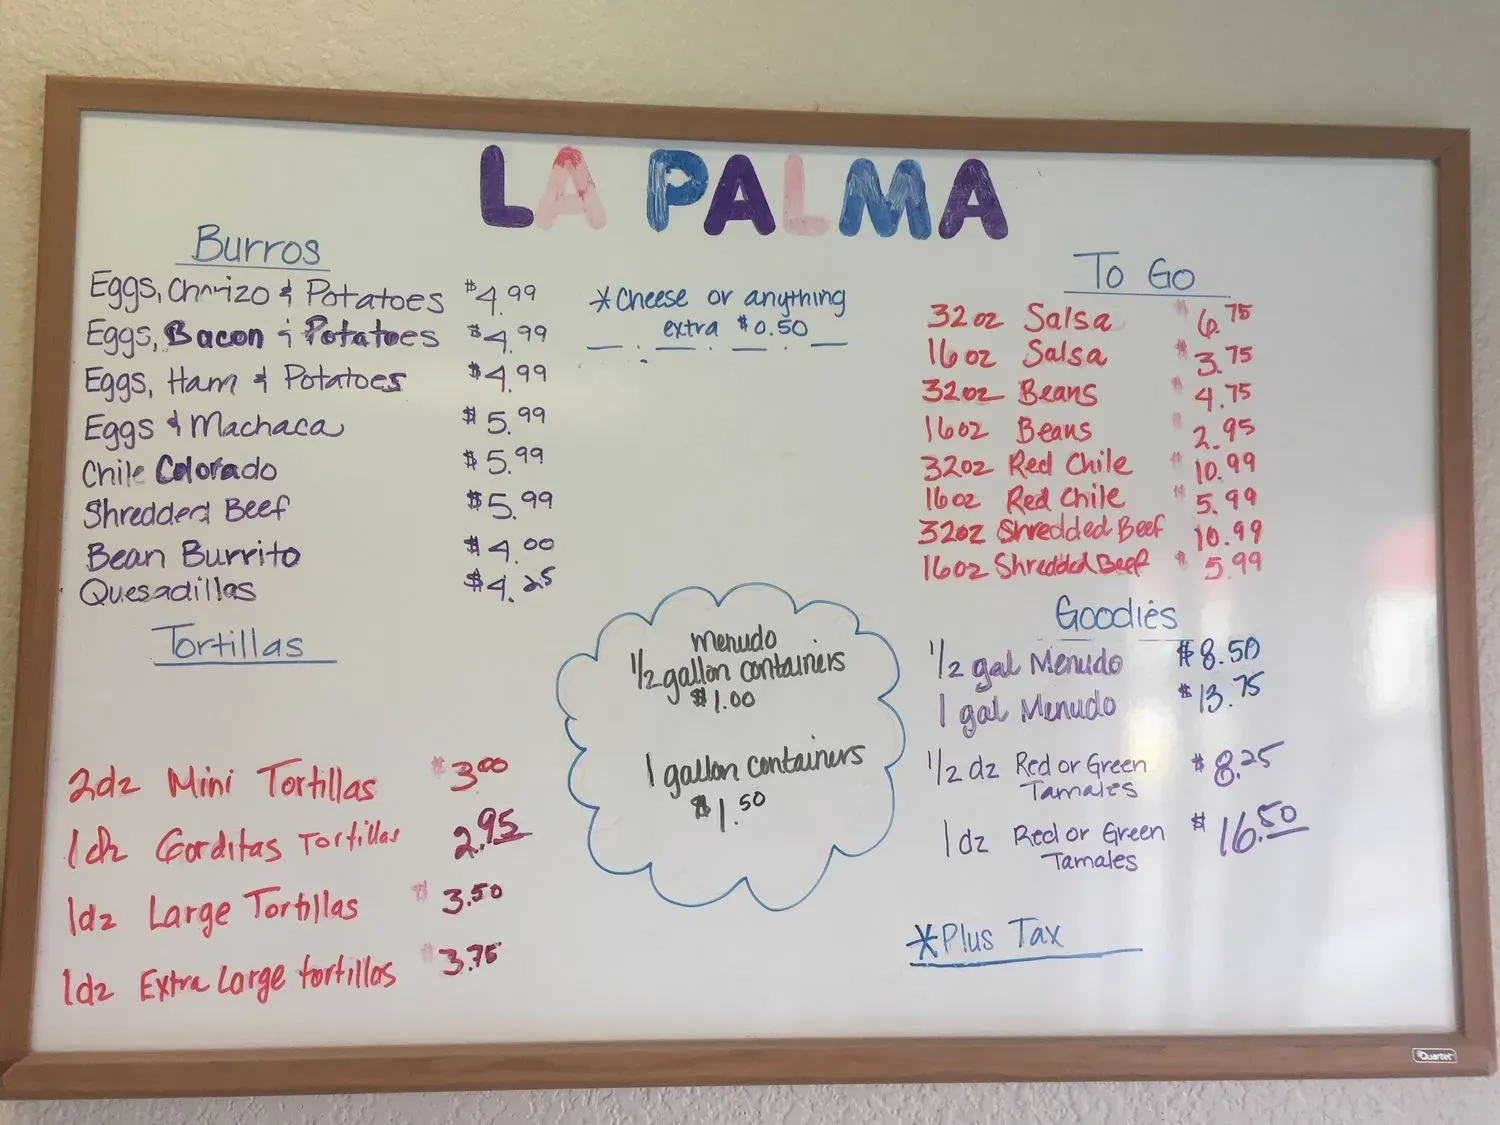 LA PALMA
Burros
Eggs, Chorizo & Potatoes $4.99
Eggs, Bacon & Potatoes $4.99
Eggs, Ham & Potatoes $4.99
Eggs & Machaca $5.99
Chile Colorado $5.99
Shredded Beef $5.99
Bean Burrito $4.00
Quesadillas $4.25
*Cheese or anything
extra $0.50
Tortillas
2dz Mini Tortillas $3.00
1dz Gorditas Tortillas 2.95
1dz Large Tortillas $3.50
1dz Extra Large tortillas $3.75
menudo
1/2 gallon containers
$1.00
1 gallon containers
$1.50
To Go
32oz Salsa $6.75
16oz Salsa $3.75
32oz Beans $4.75
16oz Beans $2.95
32oz Red Chile $10.99
16oz Red Chile $5.99
32oz Shredded Beef 10.99
16oz Shredded Beef $5.99
Goodies
1/2 gal Menudo $8.50
1 gal Menudo $13.75
1/2 dz Red or Green $8.25
Tamales
1dz Red or Green $16.50
Tamales
*Plus Tax
Quartet